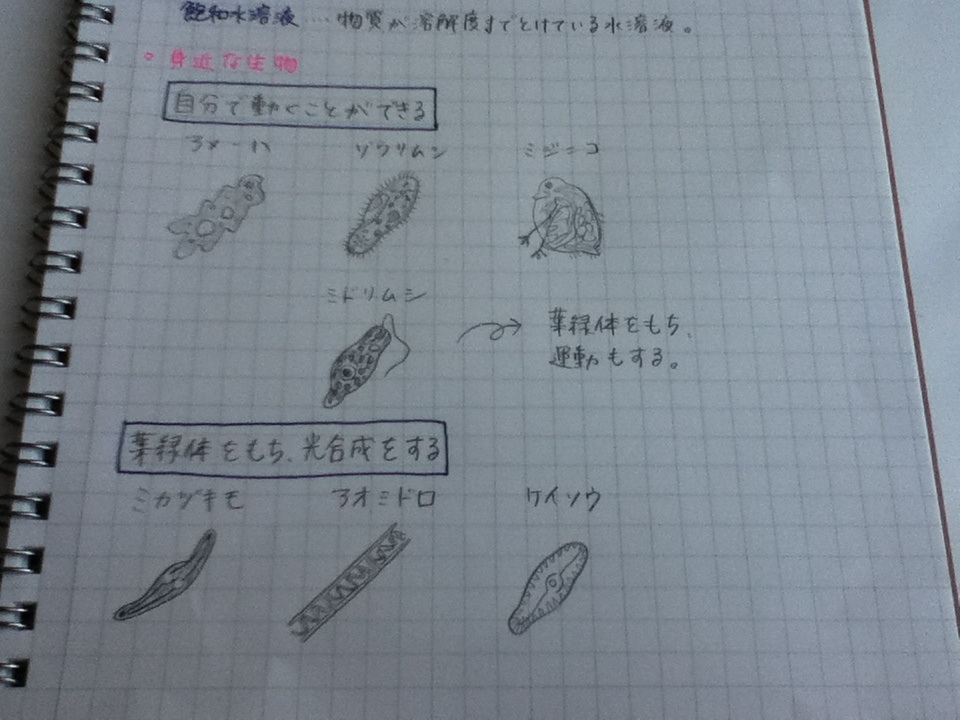 飽和水溶液…物質が溶解度までとけている水溶液。
○身近な生物
自分で動くことができる
アメーバ ゾウリムシ ミジンコ
ミドリムシ
葉緑体をもち、
運動もする。
葉緑体をもち、光合成をする
ミカヅキモ アオミドロ ケイソウ